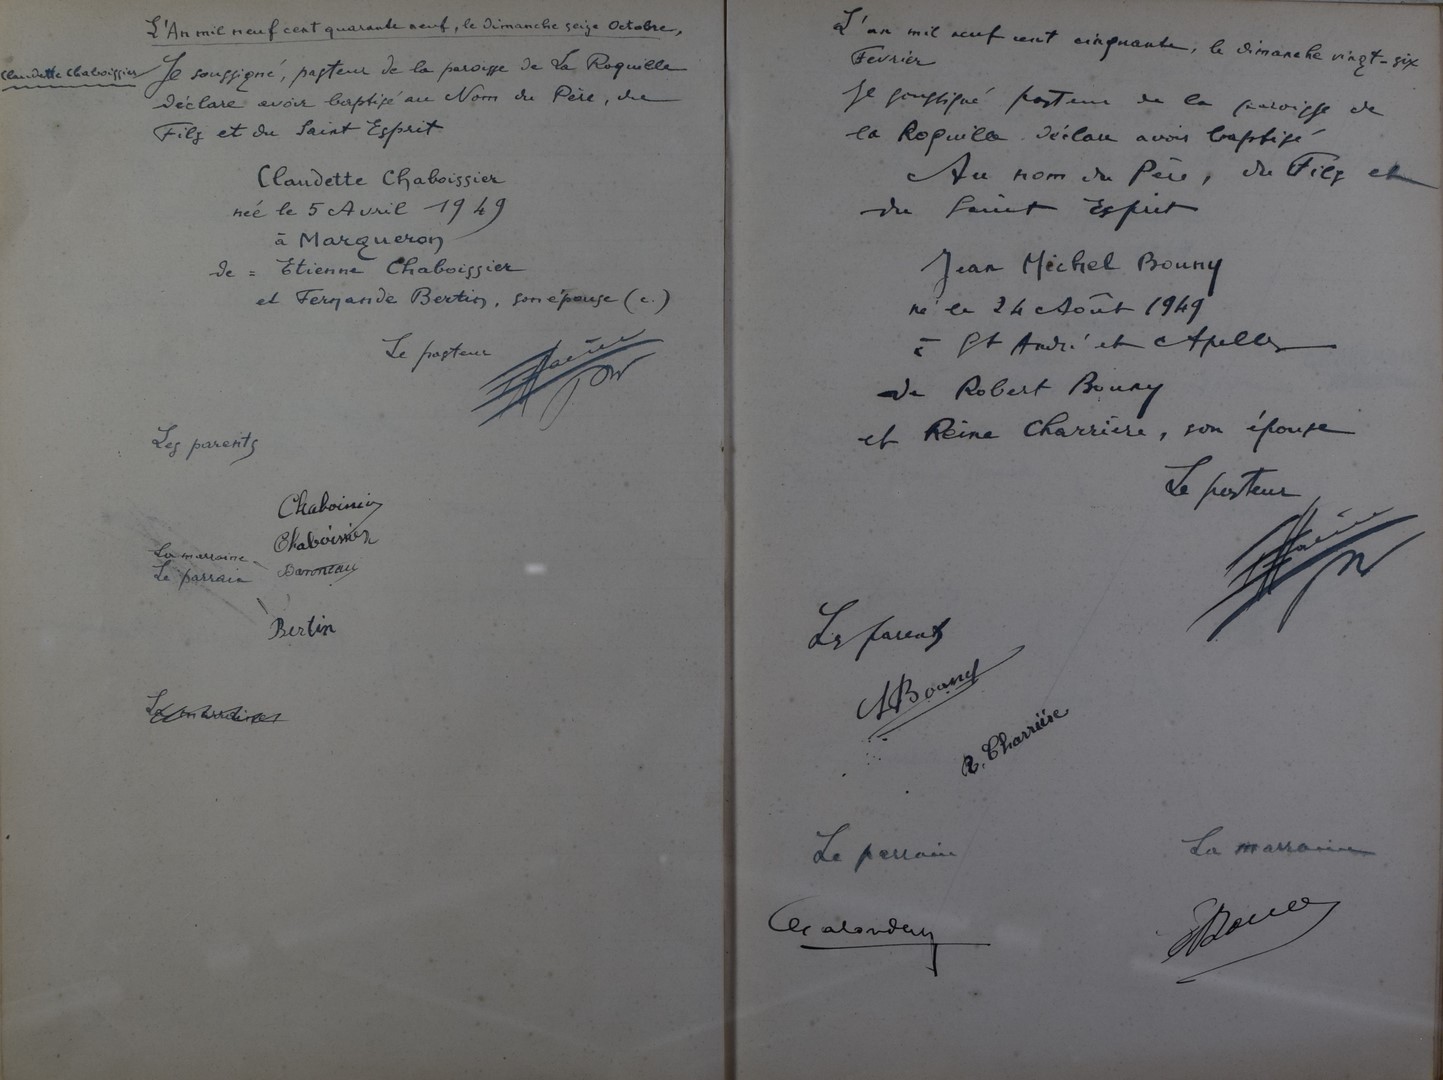 L'An mil neuf cent quarante neuf, le dimanche seize Octobre,
Claudette Chaboissier
Je soussigné, pasteur de la paroisse de La Roquille
déclare avoir baptisé au Nom du Père, du
Fils et du Saint Esprit
Claudette Chaboissier
née le 5 Avril 1949
à Margueron
de = Etienne Chaboissier
et Fernande Bertin, son épouse (c.)
Le pasteur
Les parents
Chaboissier
Chaboissier
La marraine
Le parrain
Bertin
L'an mil neuf cent cinquante, le dimanche vingt-six
Février
Je soussigné pasteur de la paroisse de
la Roquille déclare avoir baptisé
Au nom du Père, du Fils et
du Saint Esprit
Jean Michel Bouny
né le 24 Août 1949
à St André et Apelles
de Robert Bouny
et Reine Charrière, son épouse
Le pasteur
Les parents
Bouny
R. Charrière
Le parrain
La marraine